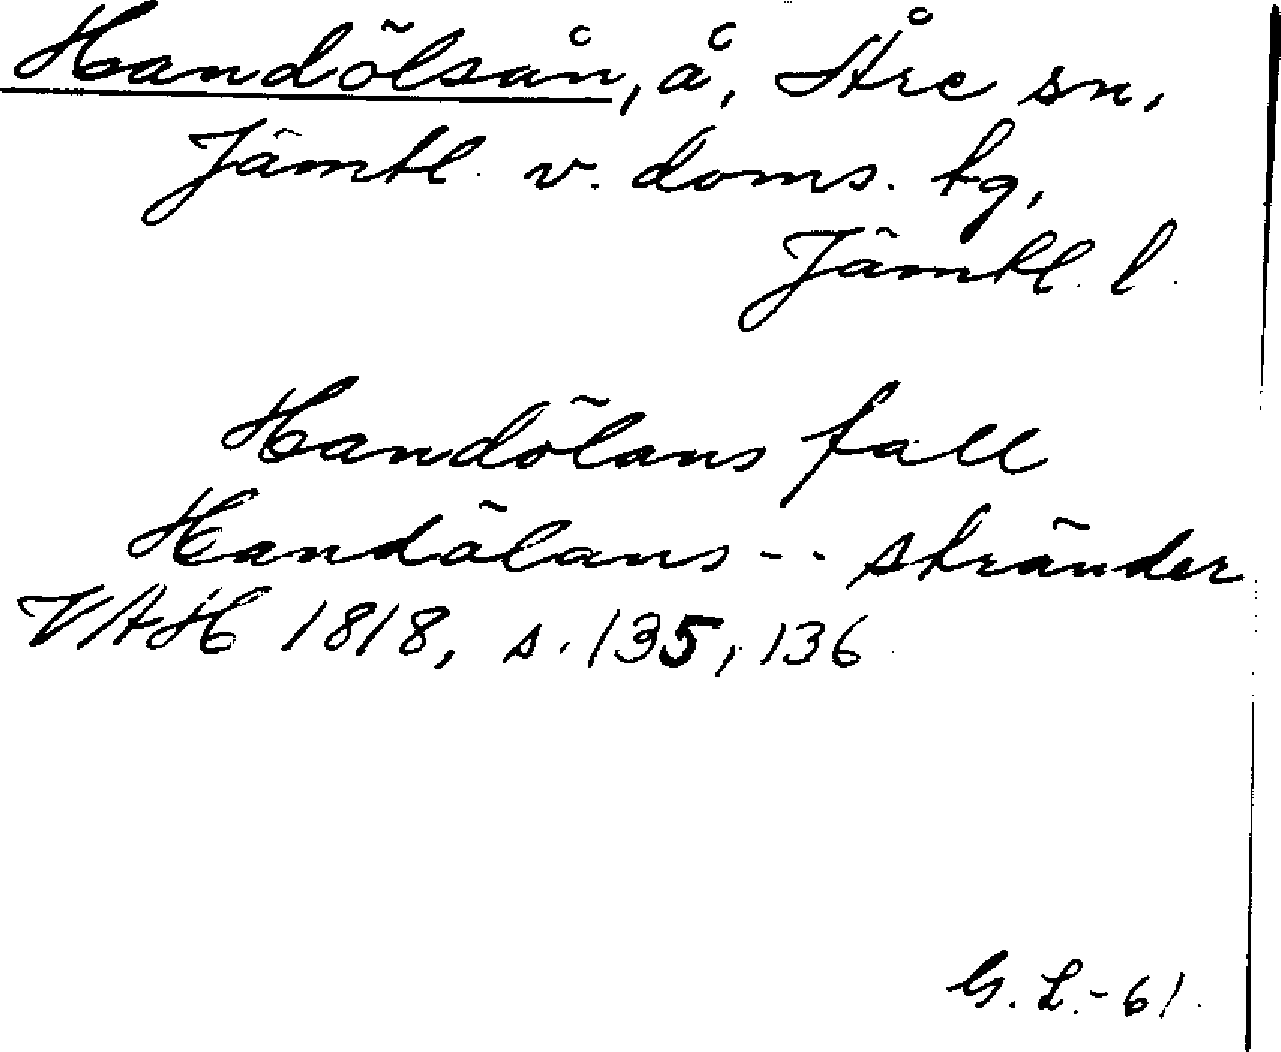 Handölsån, å, Åre sn,
Jämtl. v. doms. tg,
Jämtl. l.
Handölans fall
Handölans -- stränder
VAH 1818, s. 135, 136
G. L.-61.